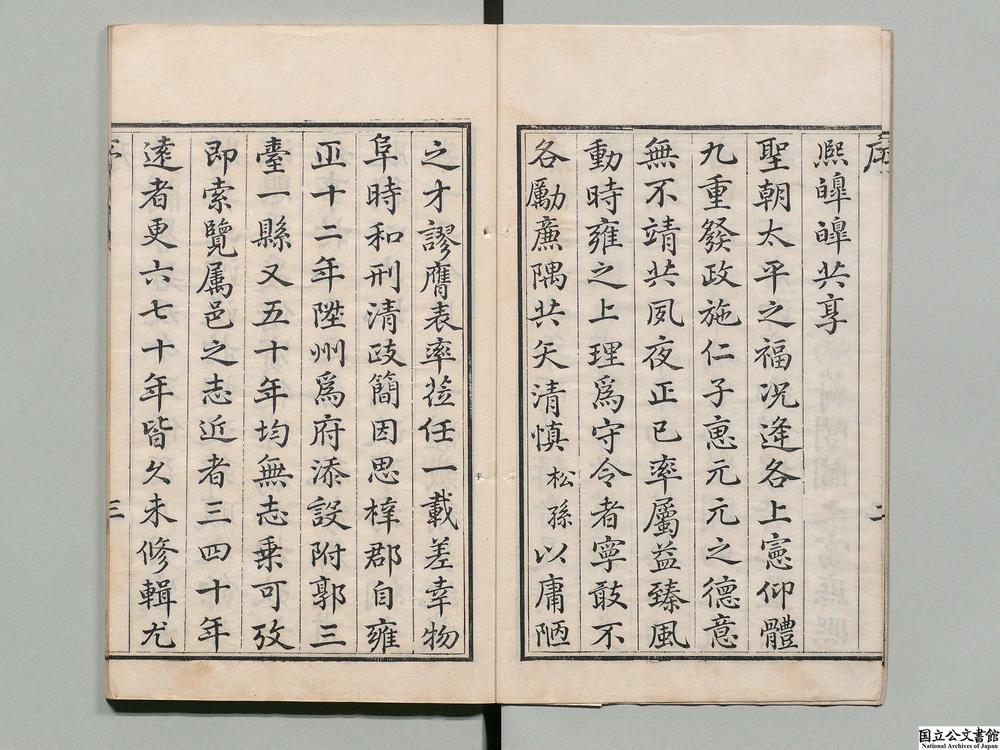 序
二
熈皥皥共享
聖朝太平之福况逢各上憲仰體
九重發政施仁子惠元元之德意
無不靖共夙夜正已率屬益臻風
動時雍之上理爲守令者寧敢不
各勵亷隅共矢清慎松孫以庸陋
之才謬膺表率莅任一載差幸物
阜時和刑清政簡因思梓郡自雍
正十二年陞州爲府添設附郭三
臺一縣又五十年均無志乗可攷
即索覽属邑之志近者三四十年
逺者更六七十年皆久未修輯尤
三
国立公文書館
National Archives of Japan